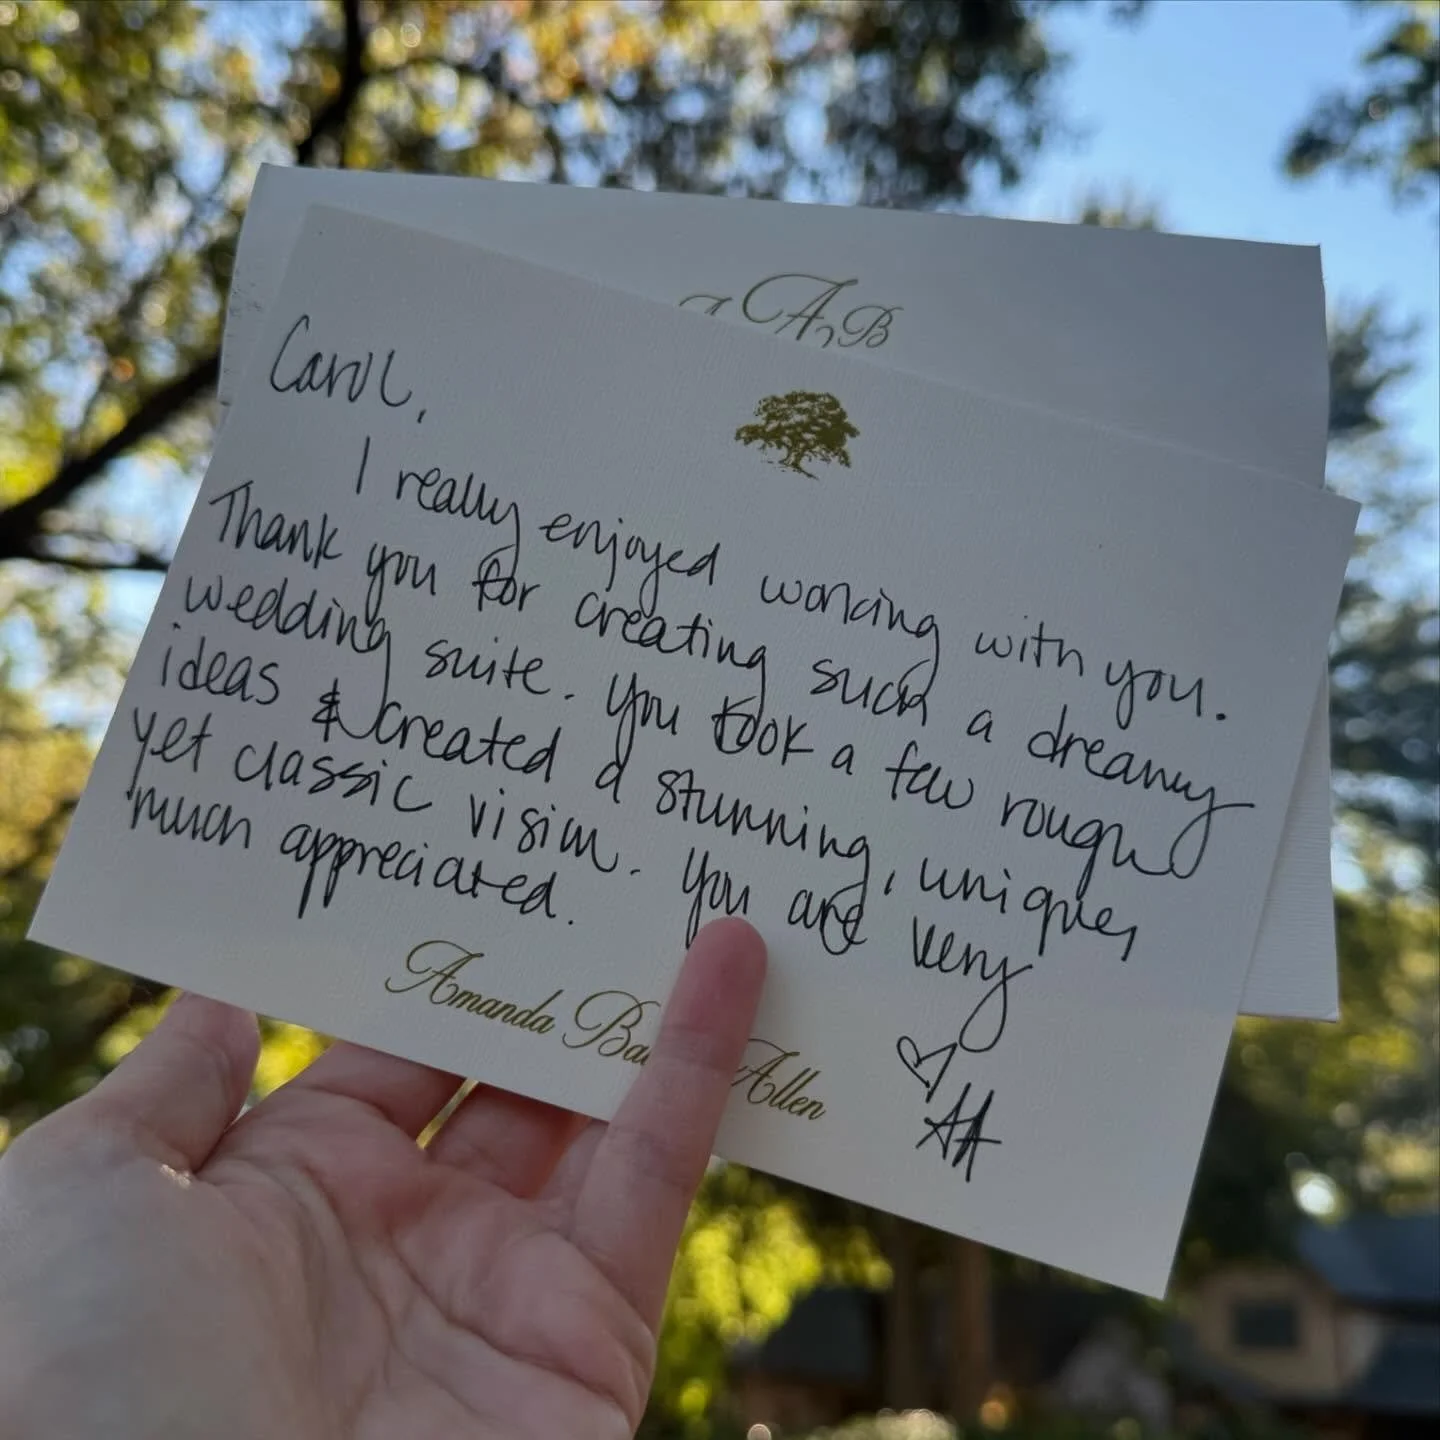 AB
Carol,
I really enjoyed working with you.
Thank you for creating such a dreamy
wedding suite. You took a few rough
ideas & created a stunning, unique,
yet classic vision. You are very
much appreciated.
♡
AA
Amanda Allen